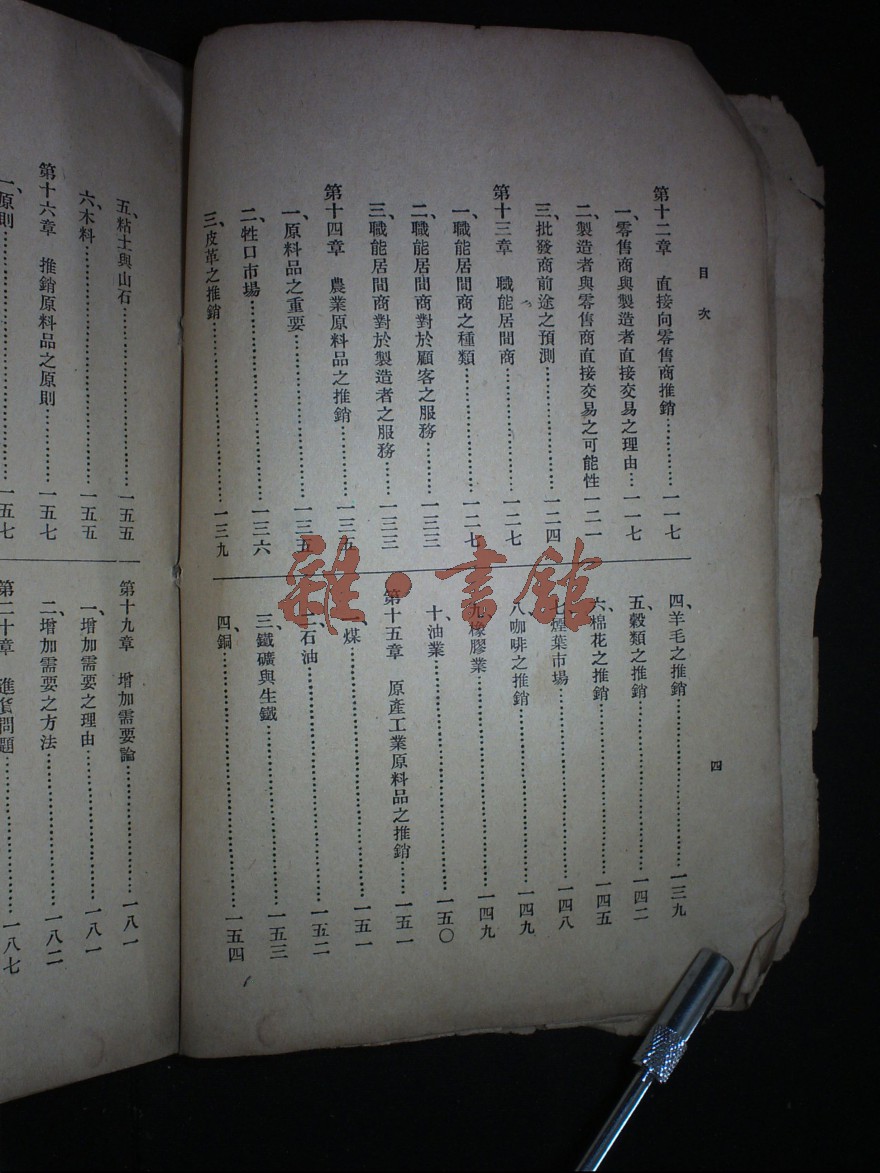 目次
四
第十二章 直接向零售商推銷…………一一七
一、零售商與製造者直接交易之理由…一一七
二、製造者與零售商直接交易之可能性一二一
三、批發商前途之預測…………一二四
第十三章 職能居間商…………一二七
一、職能居間商之種類…………一二七
二、職能居間商對於顧客之服務…………一三三
三、職能居間商對於製造者之服務…………一三三
第十四章 農業原料品之推銷…………一三五
一、原料品之重要…………一三五
二、牲口市場…………一三六
三、皮革之推銷…………一三九
四、羊毛之推銷…………一三九
五、穀類之推銷…………一四二
六、棉花之推銷…………一四五
七、煙葉市場…………一四八
八、咖啡之推銷…………一四九
九、橡膠業…………一四九
十、油業…………一五〇
第十五章 原產工業原料品之推銷…………一五一
一、煤…………一五一
二、石油…………一五二
三、鐵礦與生鐵…………一五三
四、銅…………一五四
五、粘土與山石…………一五五
六、木料…………一五五
第十六章 推銷原料品之原則…………一五七
一、原則…………一五七
第十九章 增加需要論…………一八一
一、增加需要之理由…………一八一
二、增加需要之方法…………一八二
第二十章 進貨問題…………一八七
雜·書館